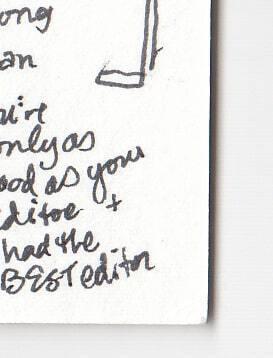 ong
an
u're
only as
ood as your
editor +
had the
BEST editor